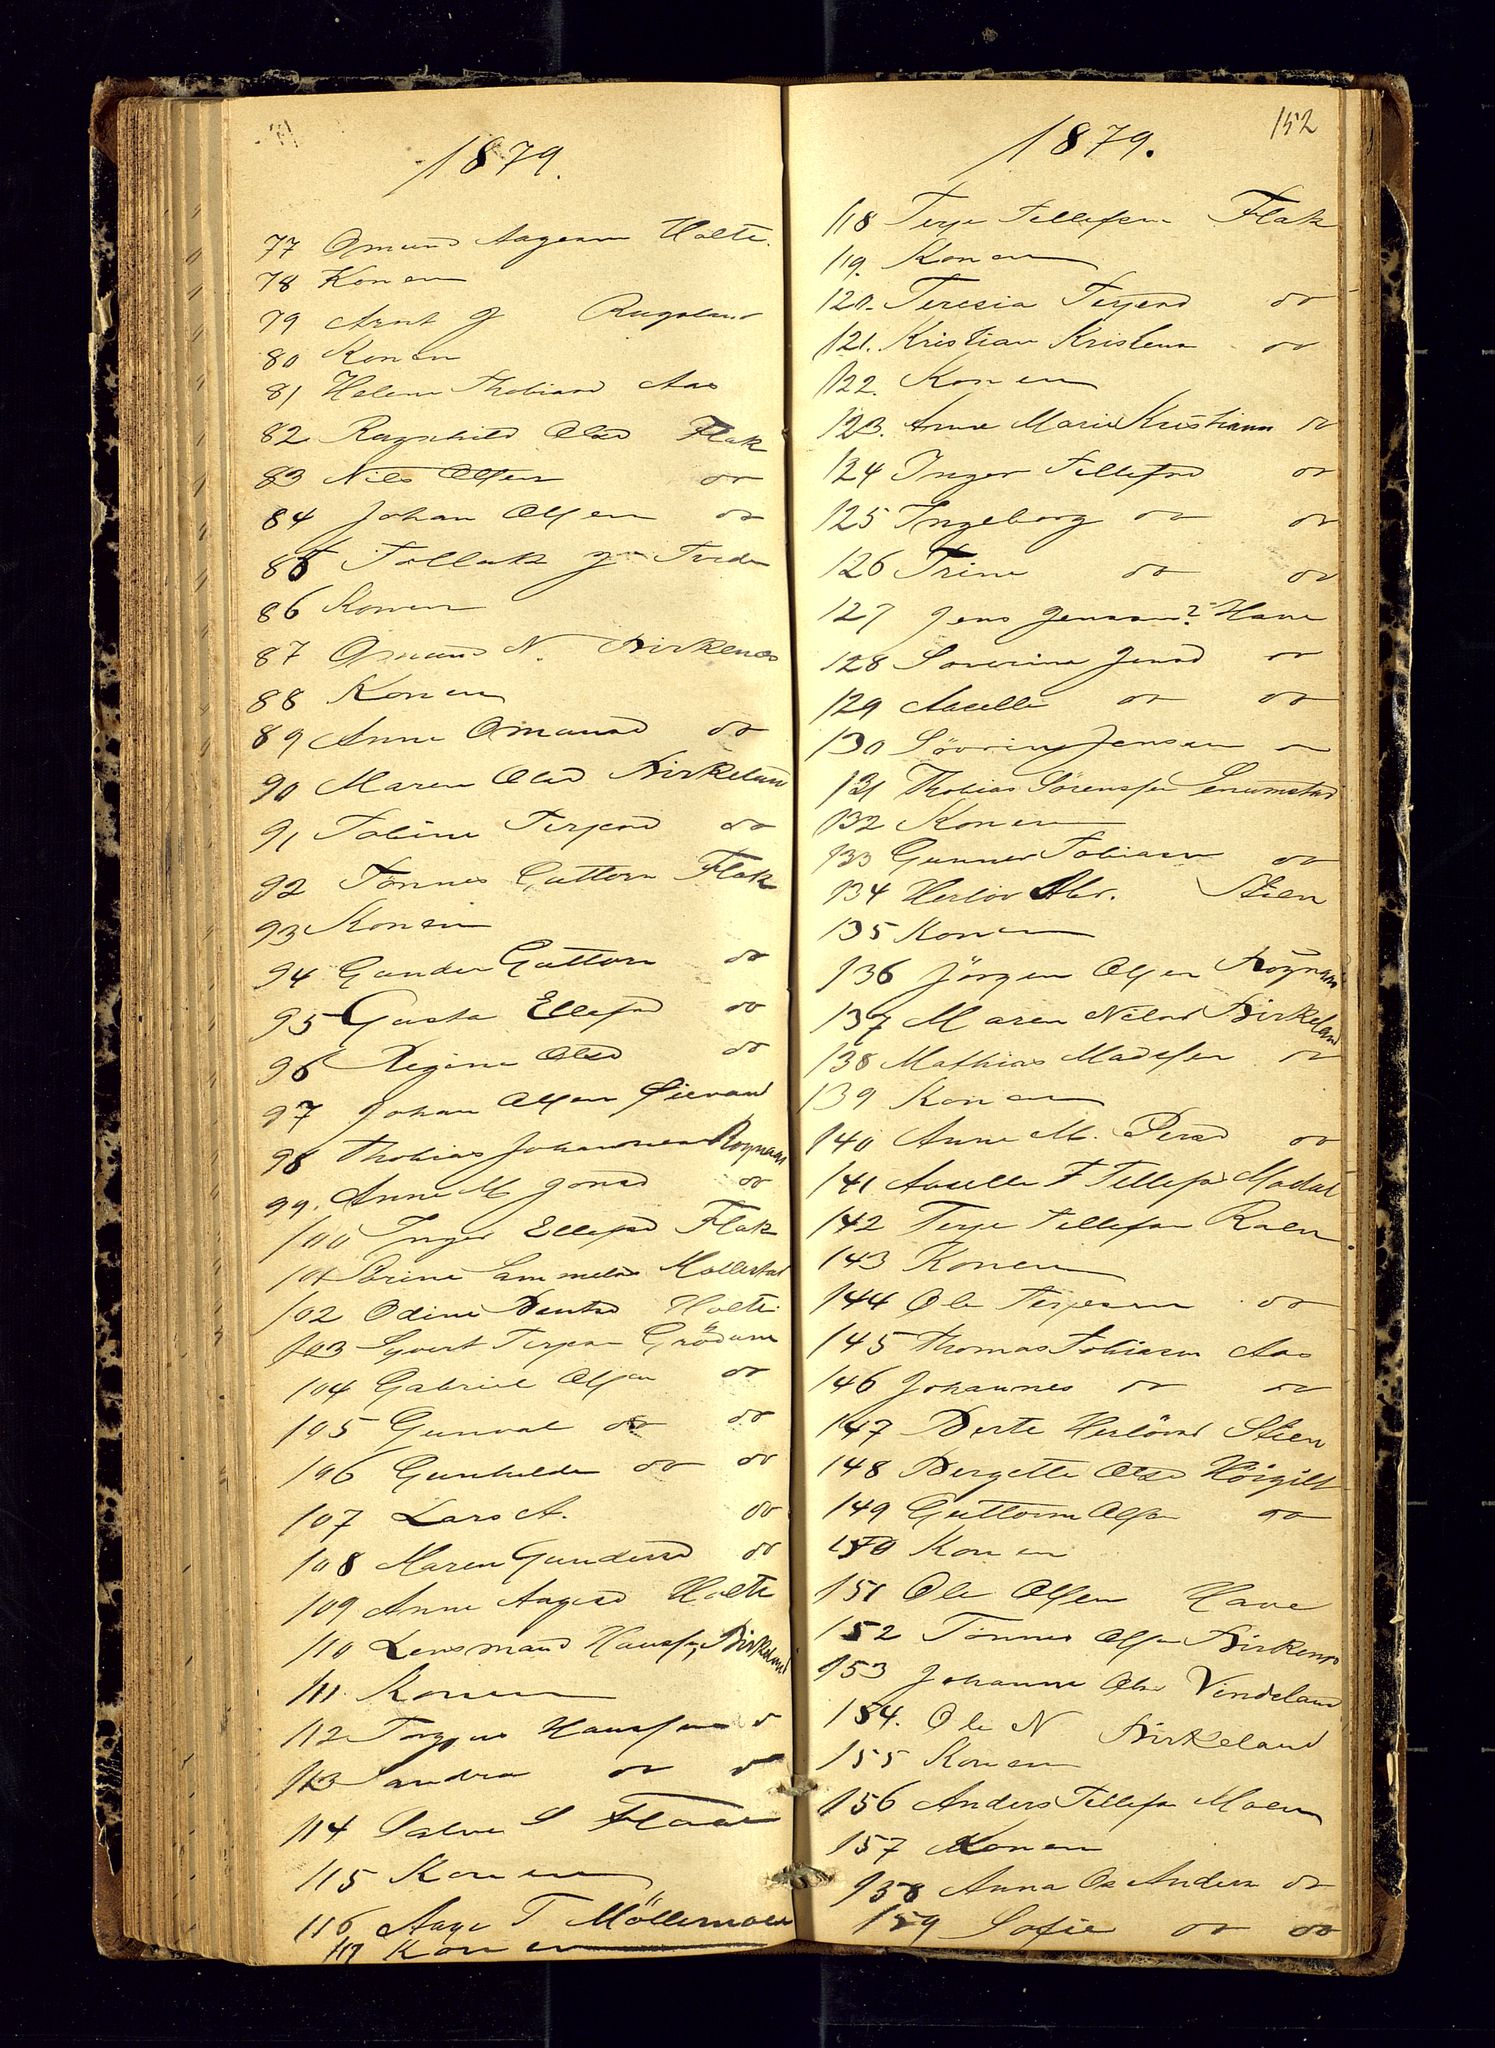 1879.
77 Omund Aagesen Holte.
78 Konen
79 Arnt J Rugsland
80 Konen
81 Helene Thobiasd Aas
82 Ragnhild Olsd Flak
83 Nils Olsen do
84 Johan Olsen do
85 Tollak J Tveden
86 Konen
87 Omund N. Birkenes
88 Konen
89 Anne Omunsd do
90 Maren Olsd Birkeland
91 Tobine Terjesd do
92 Tönnes Guttorm Flak
93 Konen
94 Gunder Guttorm do
95 Gusta Ellefsd do
96 Regine Olsd do
97 Johan Olsen Øievand
98 Thobias Johannesen Rognaas
99. Anne M Jonsd do
100 Inger Ellefsd Flak
101 Sörine Sammelsd Mollestad
102 Odine Bentsd Holte
103 Syvert Terjesen Grödum
104 Gabriel Olsen do
105 Gunval do do
106 Gunhilde do do
107 Lars A. do
108 Maren Gundersd do
109 Anne Aagesd Holte
110 Lensmand Hansen, Birkeland
111. Konen
112 Torjus Hansen do
113 Sandra do do
114 Salve S Flaa
115 Konen
116 Aage T Möllemoen
117 Konen
152
1879.
118 Terje Tellefsen Flak
119. Konen
120. Teresia Terjesd do
121. Kristian Kristens do
122. Konen
123. Anne Marie Kristians do
124 Inger Tellefsd do
125 Ingeborg do do
126 Trine do do
127 Jens Jensen? Have
128 Soverine Jensd do
129 Aaselle do do
130 Sövrin Jensen do
131 Thobias Sörensen Senumstad
132 Konen
133 Gunner Tobiasen do
134 Herlov Abr. Stien
135 Konen
136 Jörgen Olsen Rognaas
137 Maren Nilsd Birkeland
138 Mathias Madssen do
139 Konen
140 Anne M. Persd do
141 Aaselle T Tellefs Modal
142 Terje Tellefsen Roen.
143 Konen
144 Ole Terjesen do
145 Thomas Tobiasen Aas
146 Johannes do do
147 Berte Herlövsd Stien
148 Bergette Olsd Höigilt
149 Guttorm Olsen do
150 Konen
151 Ole Olsen Have
152 Tönnes Olsen Birkenes
153 Johanne Olsd Vindeland
154. Ole N Birkeland
155 Konen
156 Anders Tellefsen Moen
157 Konen
158 Anna Anders do
159 Sofie do do